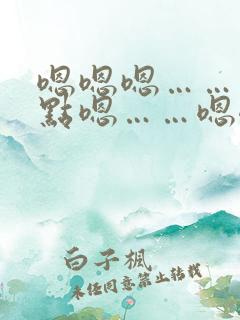 嗯嗯嗯……
點嗯……嗯
白子楓
未经同意禁止转载